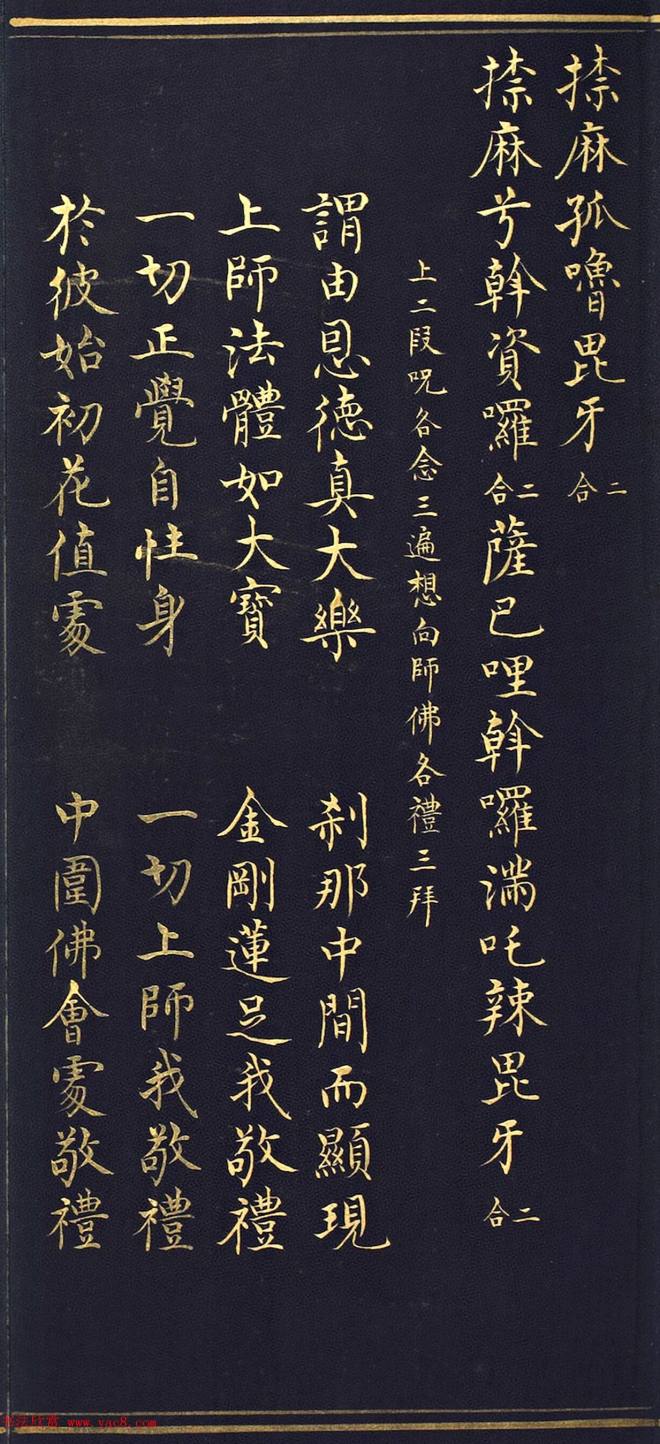 捺麻孤嚕毘牙二合
捺麻兮斡資囉二合薩巴哩斡囉滿吒辣毘牙二合
上二段呪各念三遍想向師佛各禮三拜
謂由恩德真大樂 剎那中間而顯現
上師法體如大寶 金剛蓮足我敬禮
一切正覺自性身 一切上師我敬禮
於彼始初花值處 中圍佛會處敬禮
书法欣赏 www.yac8.com